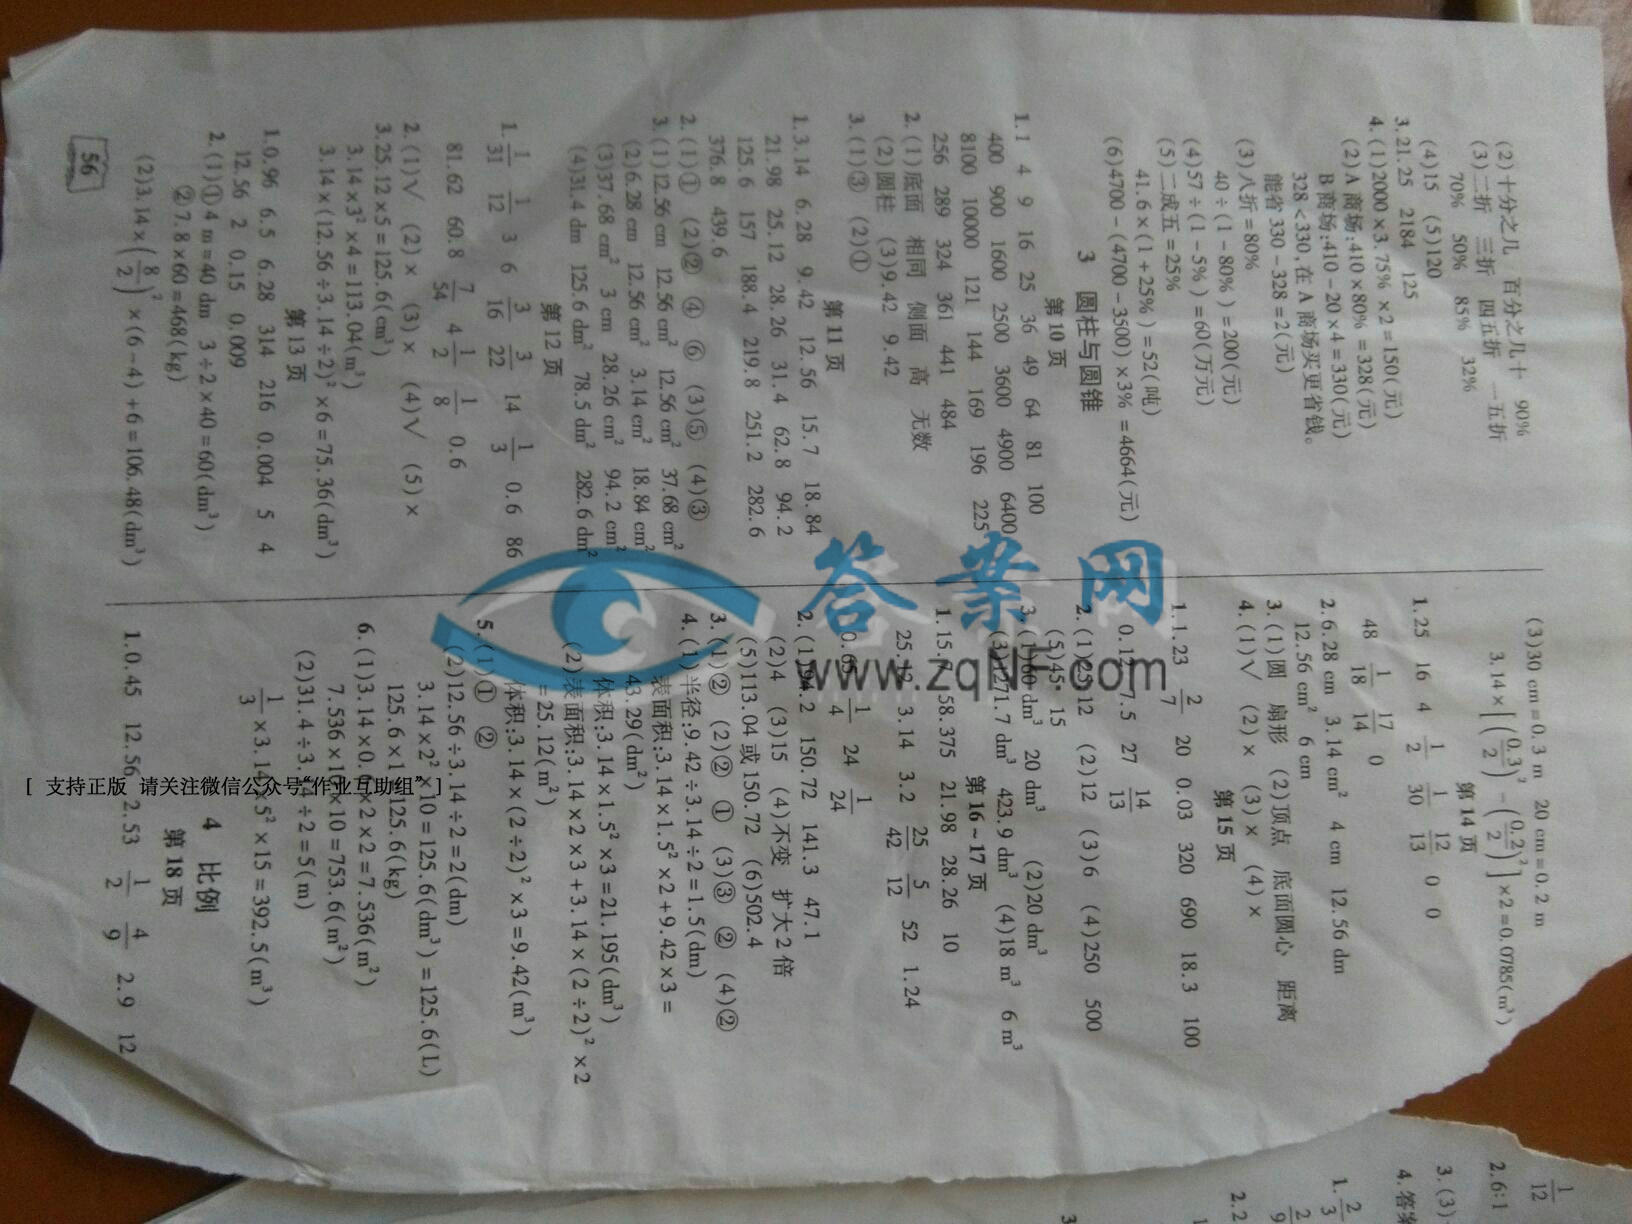 (2)十分之几 百分之几十 90%
(3)二折 三折 四五折 一五折
70% 50% 85% 32%
(4)15 (5)120
3.21.25 2184 125
4.(1)2000×3.75%×2=150(元)
(2)A商场:410×80%=328(元)
B商场:410-20×4=330(元)
328<330,在A商场买更省钱。
能省330-328=2(元)
(3)八折=80%
40÷(1-80%)=200(元)
(4)57÷(1-5%)=60(万元)
(5)二成五=25%
41.6×(1+25%)=52(吨)
(6)4700-(4700-3500)×3%=4664(元)
3 圆柱与圆锥
第10页
1.1 4 9 16 25 36 49 64 81 100
400 900 1600 2500 3600 4900 6400
8100 10000 121 144 169 196 225
256 289 324 361 441 484
2.(1)底面 相同 侧面 高 无数
(2)圆柱 (3)9.42 9.42
3.(1)③ (2)①
第11页
1.3.14 6.28 9.42 12.56 15.7 18.84
21.98 25.12 28.26 31.4 62.8 94.2
125.6 157 188.4 219.8 251.2 282.6
376.8 439.6
2.(1)① (2)② ④ ⑥ (3)⑤ (4)③
3.(1)12.56 cm 12.56 cm² 12.56 cm² 37.68 cm²
(2)6.28 cm 12.56 cm² 3.14 cm² 18.84 cm²
(3)37.68 cm² 3 cm 28.26 cm² 94.2 cm²
(4)31.4 dm 125.6 dm² 78.5 dm² 282.6 dm²
第12页
1. 1/31 1/12 3 6 3/16 3/22 14 1/3 0.6 86
81.62 60.8 7/54 4 1/2 1/8 0.6
2.(1)√ (2)× (3)× (4)√ (5)×
3.25.12×5=125.6(cm³)
3.14×3²×4=113.04(m³)
3.14×(12.56÷3.14÷2)²×6=75.36(dm³)
第13页
1.0.96 6.5 6.28 314 216 0.004 5 4
12.56 2 0.15 0.009
2.(1)①4 m=40 dm 3÷2×40=60(dm³)
②7.8×60=468(kg)
(2)3.14×(8/2)²×(6-4)+6=106.48(dm³)
56
(3)30 cm=0.3 m 20 cm=0.2 m
3.14×[(0.3/2)²-(0.2/2)²]×2=0.0785(m³)
第14页
1.25 16 4 1/2 1/30 12/13 0 0
48 1/18 17/14 0
2.6.28 cm 3.14 cm² 4 cm 12.56 dm
12.56 cm² 6 cm
3.(1)圆 扇形 (2)顶点 底面圆心 距离
4.(1)√ (2)× (3)× (4)×
第15页
1.1.23 2/7 20 0.03 320 690 18.3 100
7.5 27 14/13
2.(1)25.12 (2)12 (3)6 (4)250 500
(5)45 15
3.(1)60 dm³ 20 dm³ (2)20 dm³
(3)1271.7 dm³ 423.9 dm³ (4)18 m³ 6 m³
第16~17页
1.15.7 58.375 21.98 28.26 10
25.12 3.14 3.2 25/42 5/12 52 1.24
0.65 1/4 24 1/24
2.(1)94.2 150.72 141.3 47.1
(2)4 (3)15 (4)不变 扩大2倍
(5)113.04或150.72 (6)502.4
3.(1)② (2)② ① (3)③ ② (4)②
4.(1)半径:9.42÷3.14÷2=1.5(dm)
表面积:3.14×1.5²×2+9.42×3=
43.29(dm²)
体积:3.14×1.5²×3=21.195(dm³)
(2)表面积:3.14×2×3+3.14×(2÷2)²×2
=25.12(m²)
体积:3.14×(2÷2)²×3=9.42(m³)
5.(1)① ②
(2)12.56÷3.14÷2=2(dm)
3.14×2²×10=125.6(dm³)=125.6(L)
125.6×1=125.6(kg)
6.(1)3.14×0.6×2×2=7.536(m²)
7.536×10×10=753.6(m²)
(2)31.4÷3.14÷2=5(m)
1/3×3.14×5²×15=392.5(m³)
4 比例
第18页
1.0.45 12.56 2.53 1/2 4/9 2.9 12
答案网
www.zqnf.com
[ 支持正版 请关注微信公众号“作业互助组” ]
1/12
2.6:1
3.(3)
4.答案
1. 2/3
2/9
2.2
3